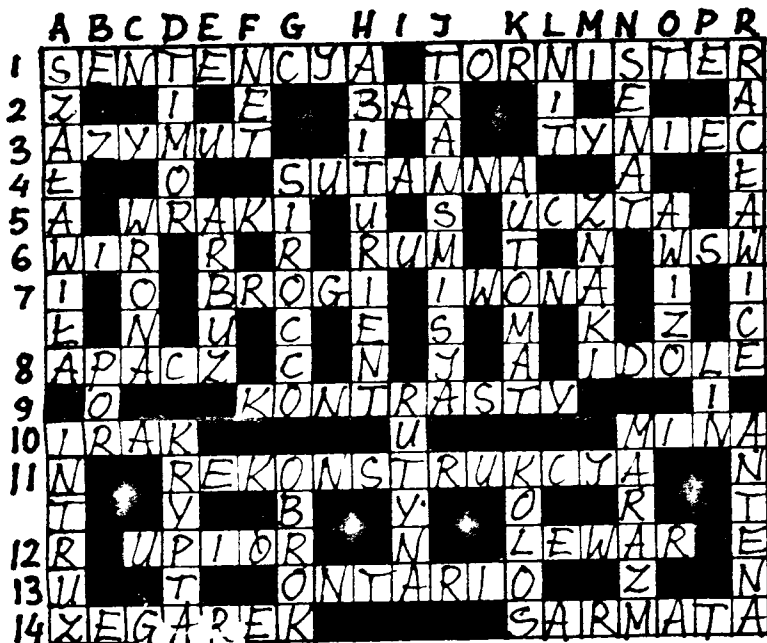 A B C D E F G H I J K L M N O P R
1 SENTENCJA TORNISTER
2 Z I E BAR I E A
3 AZYMUT I A TYNIEC
4 Ł O SUTANNA A Ł
5 A WRAKI U S UCZTA A
6 WIR R R RUM T N WSW
7 I O BROGI IWONA I I
Ł N U C E S M K Z C
8 APACZ C N J A IDOLE
9 O KONTRASTY I
10 IRAK U MINA
11 N REKONSTRUKCJA N
T Y B Y O R T
12 R UPIOR N LEWAR E
13 U T ONTARIO Z N
14 ZEGAREK SARMATA